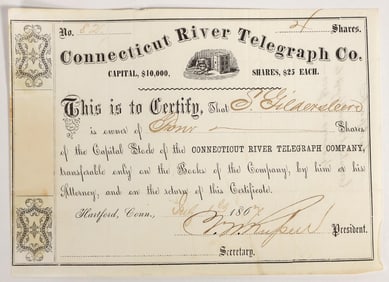 No. 82 4 Shares.
Connecticut River Telegraph Co.
CAPITAL, $10,000, SHARES, $25 EACH.
This is to Certify, That S. Gildersleeve
is owner of Four Shares
of the Capital Stock of the CONNECTICUT RIVER TELEGRAPH COMPANY,
transferable only on the Books of the Company, by him or his
Attorney, and on the return of this Certificate.
Hartford, Conn., 1867
President.
Secretary.